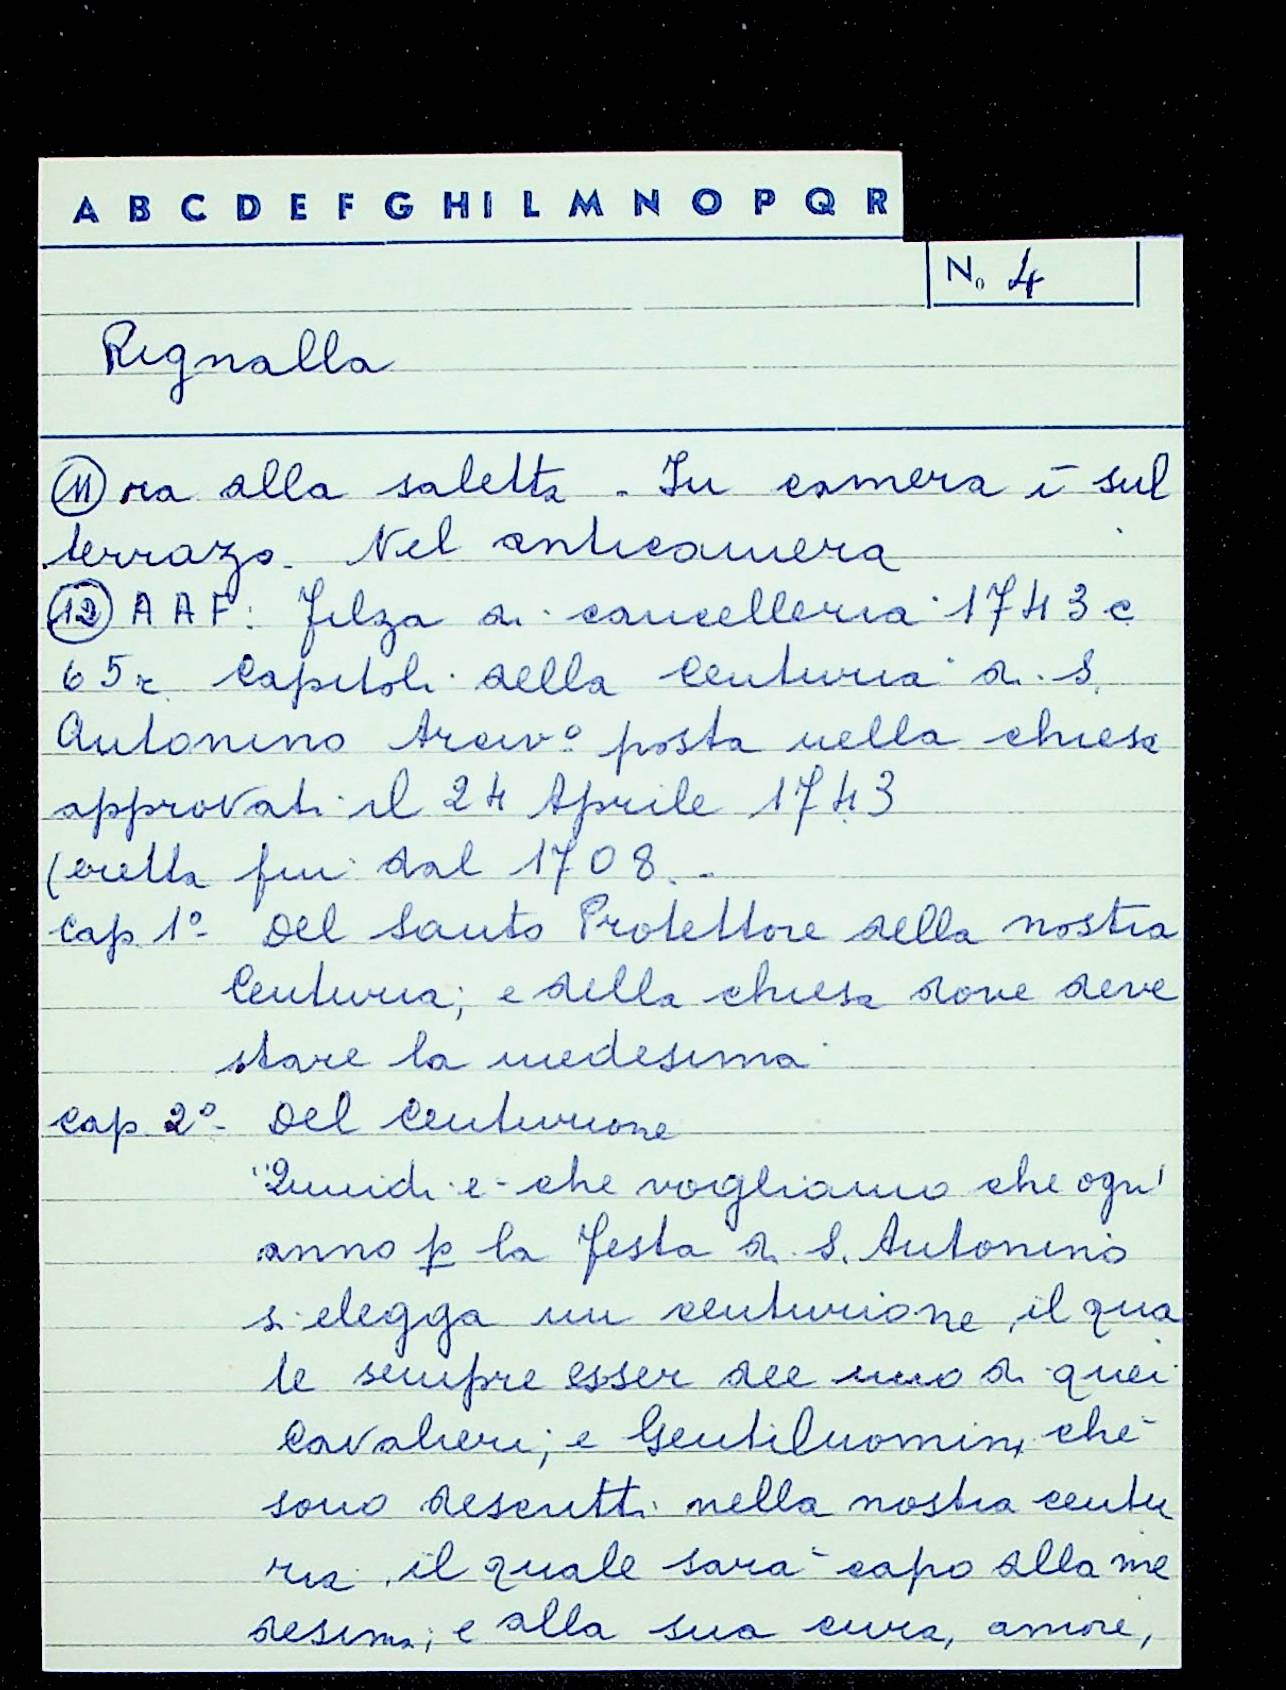 A B C D E F G H I L M N O P Q R
No 4
Rignalla
(11) ra alla saletta - In camera i sul
terrazo. Nel anticamera
(12) A A F: Filza di cancelleria 1743 c
65r Capitoli della Centuria di S.
Antonino Arcivo posta nella chiesa
approvati il 24 Aprile 1743
(eretta fin dal 1708.-
Cap 1o- Del Santo Protettore della nostra
Centuria; e della chiesa dove deve
stare la medesima
Cap 2o- Del Centurione
"Quindi e- che vogliamo che ogn'
anno p la Festa di S. Antonino
si elegga un centurione, il qua
le sempre esser dee uno di quei
Cavalieri; e Gentiluomini che
sono descritti nella nostra centu
ria, il quale sarà capo alla me
desima; e alla sua cura, amore,